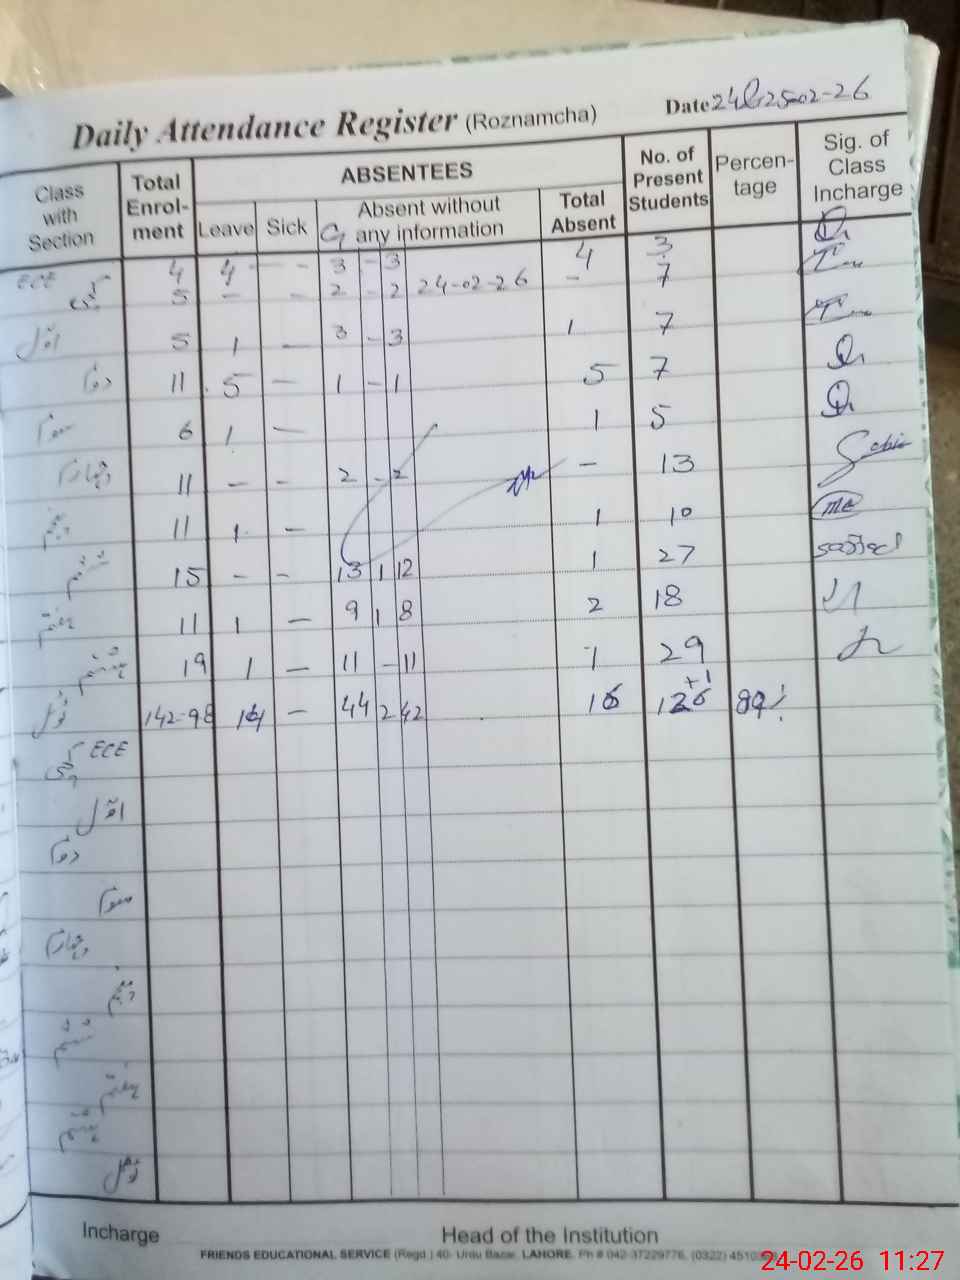 Daily Attendance Register (Roznamcha) Date 24 & 25-02-26
Class with Section
Total Enrolment
ABSENTEES
Leave
Sick
G
Absent without any information
Total Absent
No. of Present Students
Percentage
Sig. of Class Incharge
ECE 4 4 - - 3 - 3 4 3
کچی 5 - - 2 - 2 24-02-26 - 7
اوّل 5 1 - 3 - 3 1 7
دوم 11 5 - 1 - 1 5 7
سوم 6 1 - 1 5
چہارم 11 - - 2 - 2 - 13
پنجم 11 1 - 1 10
ششم 15 - - 13 1 12 1 27
ہفتم 11 1 - 9 1 8 2 18
ہشتم 19 1 - 11 - 11 1 29
ٹوٹل 142-98 14 - 44 2 42 16 126 +1 89%
ECE
کچی
اوّل
دوم
سوم
چہارم
پنجم
ششم
ہفتم
ہشتم
ٹوٹل
Incharge Head of the Institution
FRIENDS EDUCATIONAL SERVICE (Regd.) 40- Urdu Bazar, LAHORE. Ph # 042-37229776, (0322)
24-02-26 11:27